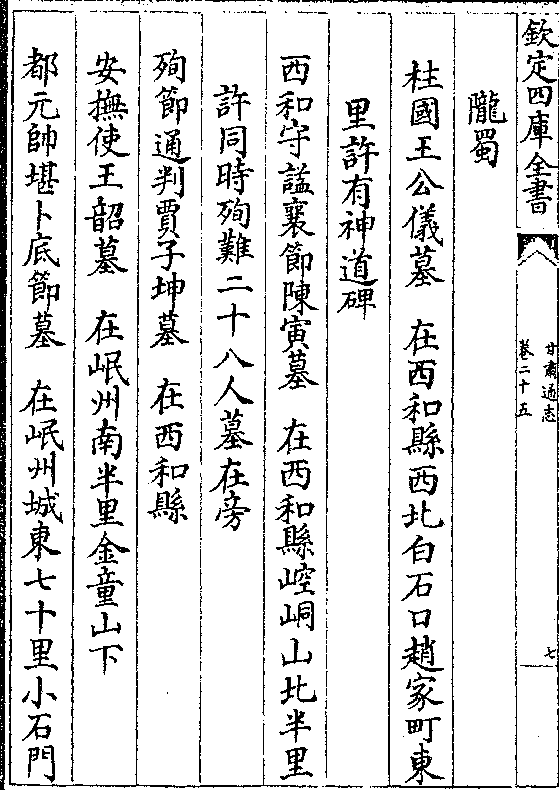 欽定四庫全書
甘肅通志
卷二十五
七
隴蜀
柱國王公儀墓　在西和縣西北白石口趙家町東
里許有神道碑
西和守謚襄節陳寅墓　在西和縣崆峒山北半里
許同時殉難二十八人墓在旁
殉節通判賈子坤墓　在西和縣
安撫使王韶墓　在岷州南半里金童山下
都元帥堪卜底節墓　在岷州城東七十里小石門